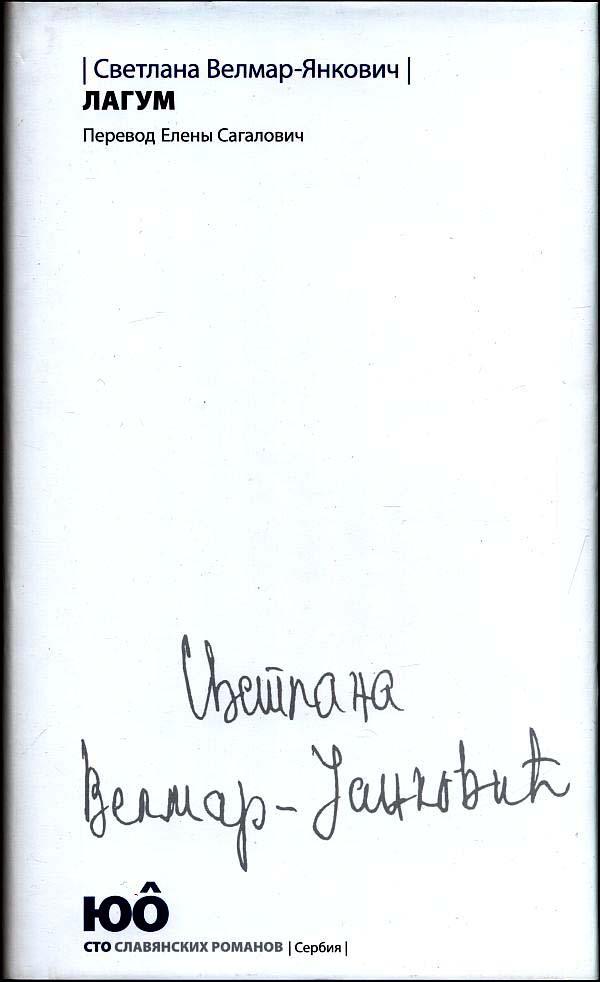 | Светлана Велмар-Янкович |
ЛАГУМ
Перевод Елены Сагалович
Светлана
Велмар-Јанковић
ЮÔ
СТО СЛАВЯНСКИХ РОМАНОВ | Сербия |